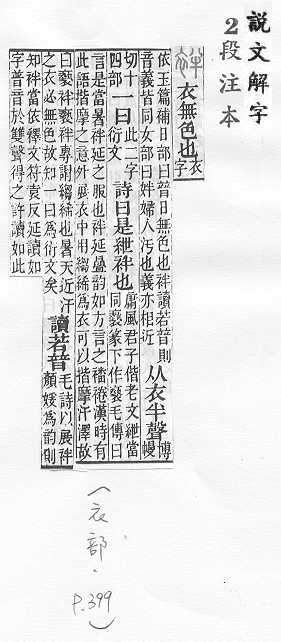 説文解字
2段注本
袢 衣無色也 衣字
依玉篇補日部曰普日無色也袢讀若普則音義皆同女部曰姅婦人污也義亦相近 从衣半聲 博幔
切十四部 一曰 此二字衍文 詩曰是紲袢也 鄘風君子偕老文紲當同褻篆下作褻毛傳曰
言是當暑袢延之服也袢延曡韵如方言之襎裷漢時有此語揩摩之意外展衣中用縐絺爲衣可以揩摩汗澤故
曰褻袢褻袢專謂縐絺也暑天近汗之衣必無色故知一曰爲衍文矣 讀若普 毛詩以展袢顏媛爲韵則
知袢當依釋文符袁反延讀如字普音於雙聲得之許讀如此
(衣部.
P.399)